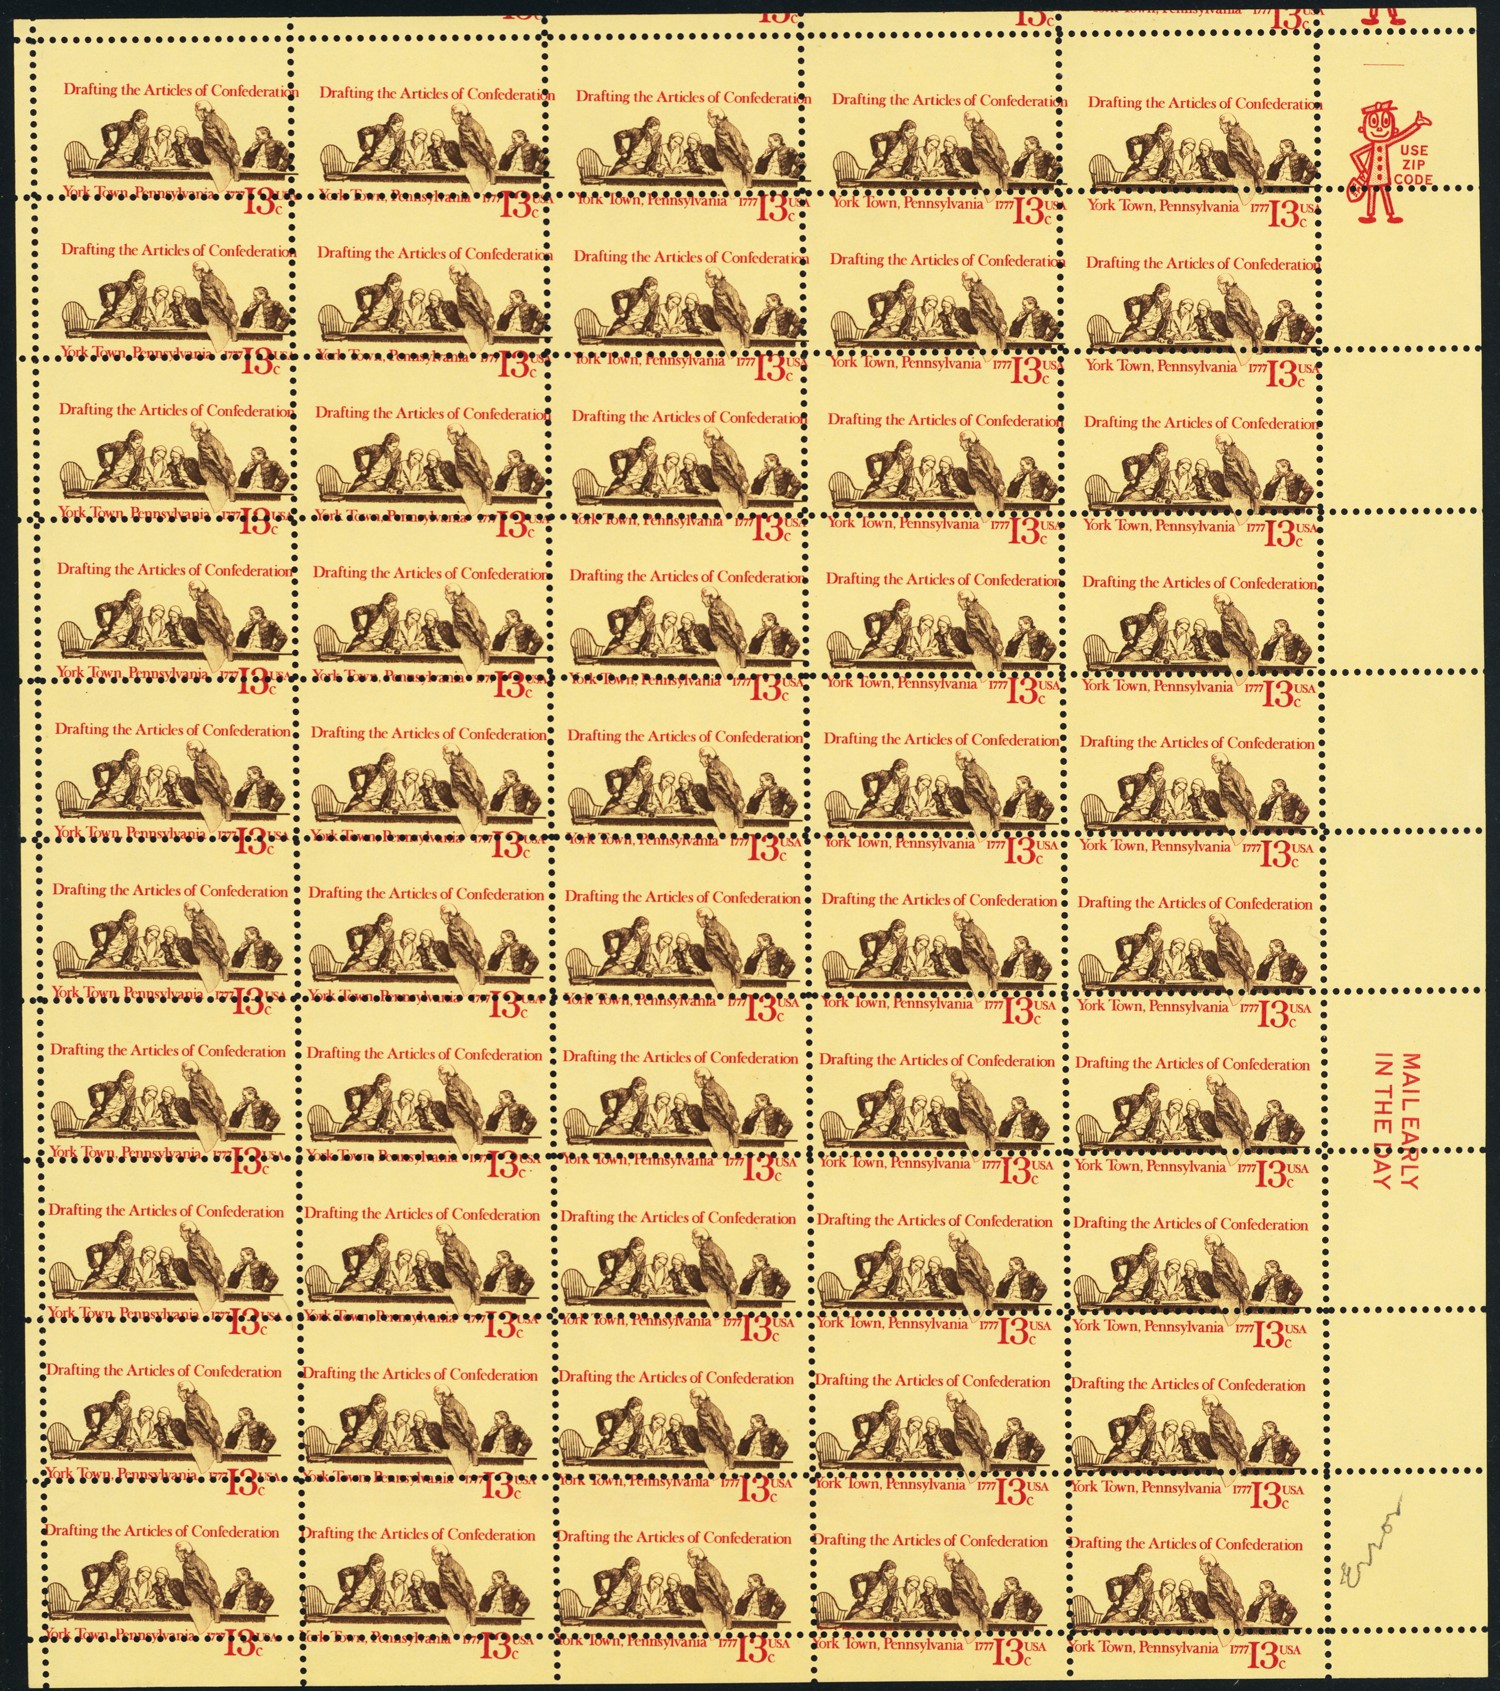 13c 13c 13c 13c
Drafting the Articles of Confederation Drafting the Articles of Confederation Drafting the Articles of Confederation Drafting the Articles of Confederation Drafting the Articles of Confederation
USE
ZIP
CODE
York Town, Pennsylvania 1777 13c USA York Town, Pennsylvania 1777 13c USA York Town, Pennsylvania 1777 13c USA York Town, Pennsylvania 1777 13c USA York Town, Pennsylvania 1777 13c USA
Drafting the Articles of Confederation Drafting the Articles of Confederation Drafting the Articles of Confederation Drafting the Articles of Confederation Drafting the Articles of Confederation
York Town, Pennsylvania 1777 13c USA York Town, Pennsylvania 1777 13c USA York Town, Pennsylvania 1777 13c USA York Town, Pennsylvania 1777 13c USA York Town, Pennsylvania 1777 13c USA
Drafting the Articles of Confederation Drafting the Articles of Confederation Drafting the Articles of Confederation Drafting the Articles of Confederation Drafting the Articles of Confederation
York Town, Pennsylvania 1777 13c USA York Town, Pennsylvania 1777 13c USA York Town, Pennsylvania 1777 13c USA York Town, Pennsylvania 1777 13c USA York Town, Pennsylvania 1777 13c USA
Drafting the Articles of Confederation Drafting the Articles of Confederation Drafting the Articles of Confederation Drafting the Articles of Confederation Drafting the Articles of Confederation
York Town, Pennsylvania 1777 13c USA York Town, Pennsylvania 1777 13c USA York Town, Pennsylvania 1777 13c USA York Town, Pennsylvania 1777 13c USA York Town, Pennsylvania 1777 13c USA
Drafting the Articles of Confederation Drafting the Articles of Confederation Drafting the Articles of Confederation Drafting the Articles of Confederation Drafting the Articles of Confederation
York Town, Pennsylvania 1777 13c USA York Town, Pennsylvania 1777 13c USA York Town, Pennsylvania 1777 13c USA York Town, Pennsylvania 1777 13c USA York Town, Pennsylvania 1777 13c USA
Drafting the Articles of Confederation Drafting the Articles of Confederation Drafting the Articles of Confederation Drafting the Articles of Confederation Drafting the Articles of Confederation
York Town, Pennsylvania 1777 13c USA York Town, Pennsylvania 1777 13c USA York Town, Pennsylvania 1777 13c USA York Town, Pennsylvania 1777 13c USA York Town, Pennsylvania 1777 13c USA
Drafting the Articles of Confederation Drafting the Articles of Confederation Drafting the Articles of Confederation Drafting the Articles of Confederation Drafting the Articles of Confederation
MAIL EARLY
IN THE DAY
York Town, Pennsylvania 1777 13c USA York Town, Pennsylvania 1777 13c USA York Town, Pennsylvania 1777 13c USA York Town, Pennsylvania 1777 13c USA York Town, Pennsylvania 1777 13c USA
Drafting the Articles of Confederation Drafting the Articles of Confederation Drafting the Articles of Confederation Drafting the Articles of Confederation Drafting the Articles of Confederation
York Town, Pennsylvania 1777 13c USA York Town, Pennsylvania 1777 13c USA York Town, Pennsylvania 1777 13c USA York Town, Pennsylvania 1777 13c USA York Town, Pennsylvania 1777 13c USA
Drafting the Articles of Confederation Drafting the Articles of Confederation Drafting the Articles of Confederation Drafting the Articles of Confederation Drafting the Articles of Confederation
York Town, Pennsylvania 1777 13c USA York Town, Pennsylvania 1777 13c USA York Town, Pennsylvania 1777 13c USA York Town, Pennsylvania 1777 13c USA York Town, Pennsylvania 1777 13c USA
Drafting the Articles of Confederation Drafting the Articles of Confederation Drafting the Articles of Confederation Drafting the Articles of Confederation Drafting the Articles of Confederation
Error
York Town, Pennsylvania 1777 13c USA York Town, Pennsylvania 1777 13c USA York Town, Pennsylvania 1777 13c USA York Town, Pennsylvania 1777 13c USA York Town, Pennsylvania 1777 13c USA